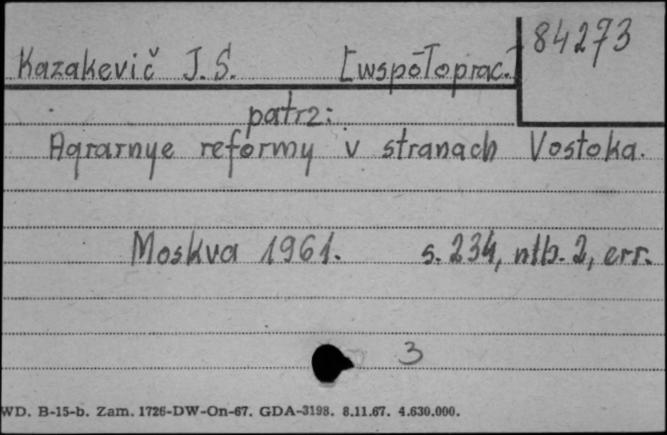 84273
Kazakevič J. S. [współoprac.]
patrz:
Agrarnye reformy v stranach Vostoka.
Moskva 1961. s. 234, nlb. 2, err.
3
WD. B-15-b. Zam. 1726-DW-On-67. GDA-3198. 8.11.67. 4.630.000.